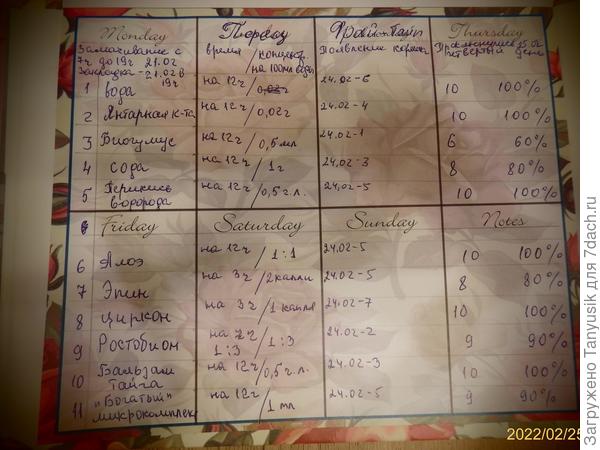 Monday
Замачивание с
7ч до 19ч 21.02
Закладка - 21.02 в
19ч
время / концент.
на 100мл воды
Появление корешка
Thursday
25.02
четвертый день
1 вода на 12ч / 24.02-6 10 100%
2 Янтарная к-та на 12ч / 0,02г 24.02-4 10 100%
3 Биогумус на 12ч / 0,5мл 24.02-1 6 60%
4 сода на 12ч / 1г 24.02-3 8 80%
5 Перикись
водорода на 12ч / 0,5г.л. 24.02-5 10 100%
Friday Saturday Sunday Notes
6 Алоэ на 12ч / 1:1 24.02-5 10 100%
7 Эпин на 3ч / 2капли 24.02-5 8 80%
8 циркон на 3ч / 1капля 24.02-7 10 100%
9 Ростобион на 2ч / 1:3
1:3 24.02-2 9 90%
10 Бальзам
тайга на 12ч / 0,5г.л. 24.02-3 10 100%
11 "Богатый"
микрокомплекс на 12ч / 1мл 24.02-5 9 90%
2022/02/25
Загружено Tanyusik для 7dach.ru